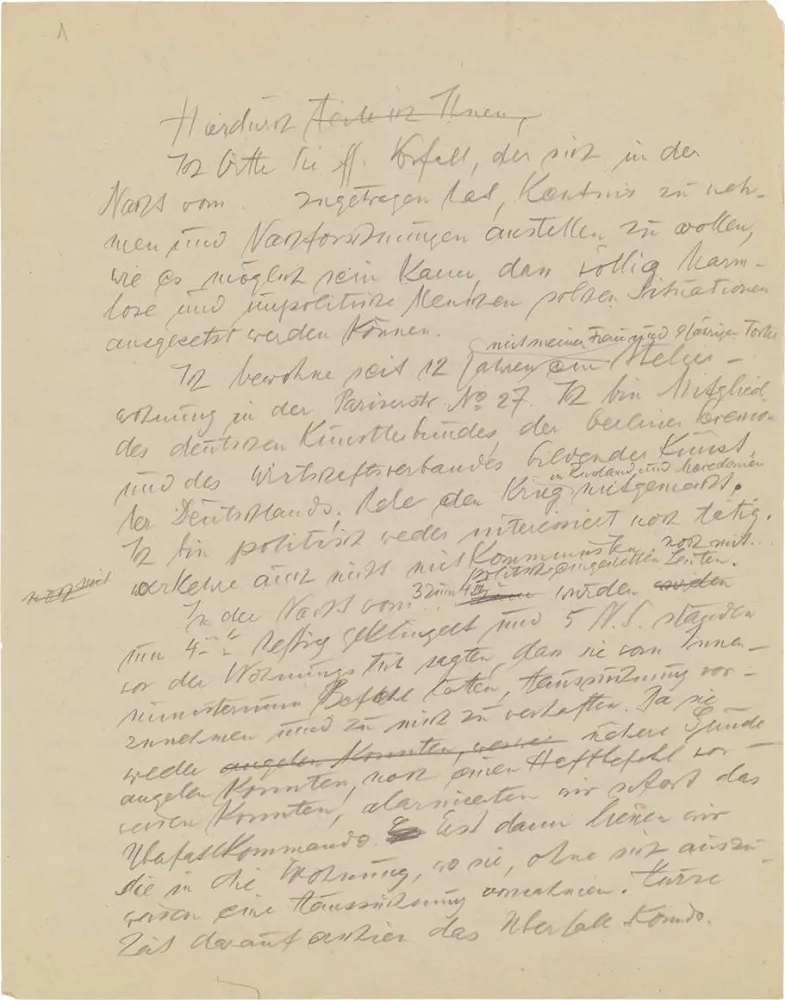 1
Hierdurch teile ich Ihnen,
Ich bitte Sie ff. Vorfall, der sich in der
Nacht vom . zugetragen hat, Kentnis zu neh-
men und Nachforschungen anstellen zu wollen,
wie es möglich sein kann, dass völlig harm-
lose und unpolitische Menschen solchen Situationen
ausgesetzt werden können.
mit meiner Frau und 9jährigen Tochter
Ich bewohne seit 12 Jahren eine Atelier-
wohnung in der Pariserstr. No 27. Ich bin Mitglied
des deutschen Künstlerbundes, der berliner Secession
und des Wirtschaftsverbandes bildender Künst
ler Deutschlands. Habe den Krieg mitgemacht.
in Russland und Macedonien
Ich bin politisch weder interessiert noch tätig.
verkehre auch nicht mit Kommunisten noch mit
noch mit
politisch eingestellten Leuten.
In der Nacht vom 3 zum 4 wurden wurden
um 4 heftig geklingelt und 5 N.S. standen
vor der Wohnungs Tür sagten, dass sie vom Innen-
ministerium Befehl hatten, Haussuchung vor-
zunehmen und zu mich zu verhaften. Da sie
weder angeben konnten, nähere Gründe
angeben konnten, noch einen Haftbefehl vor-
weisen konnten, alarmierten wir sofort das
Überfallkommando. Erst dann liessen wir
sie in die Wohnung, wo sie, ohne sich auszu-
weisen eine Haussuchung vornahmen. Kurze
Zeit darauf erschien das Überfall Komdo.